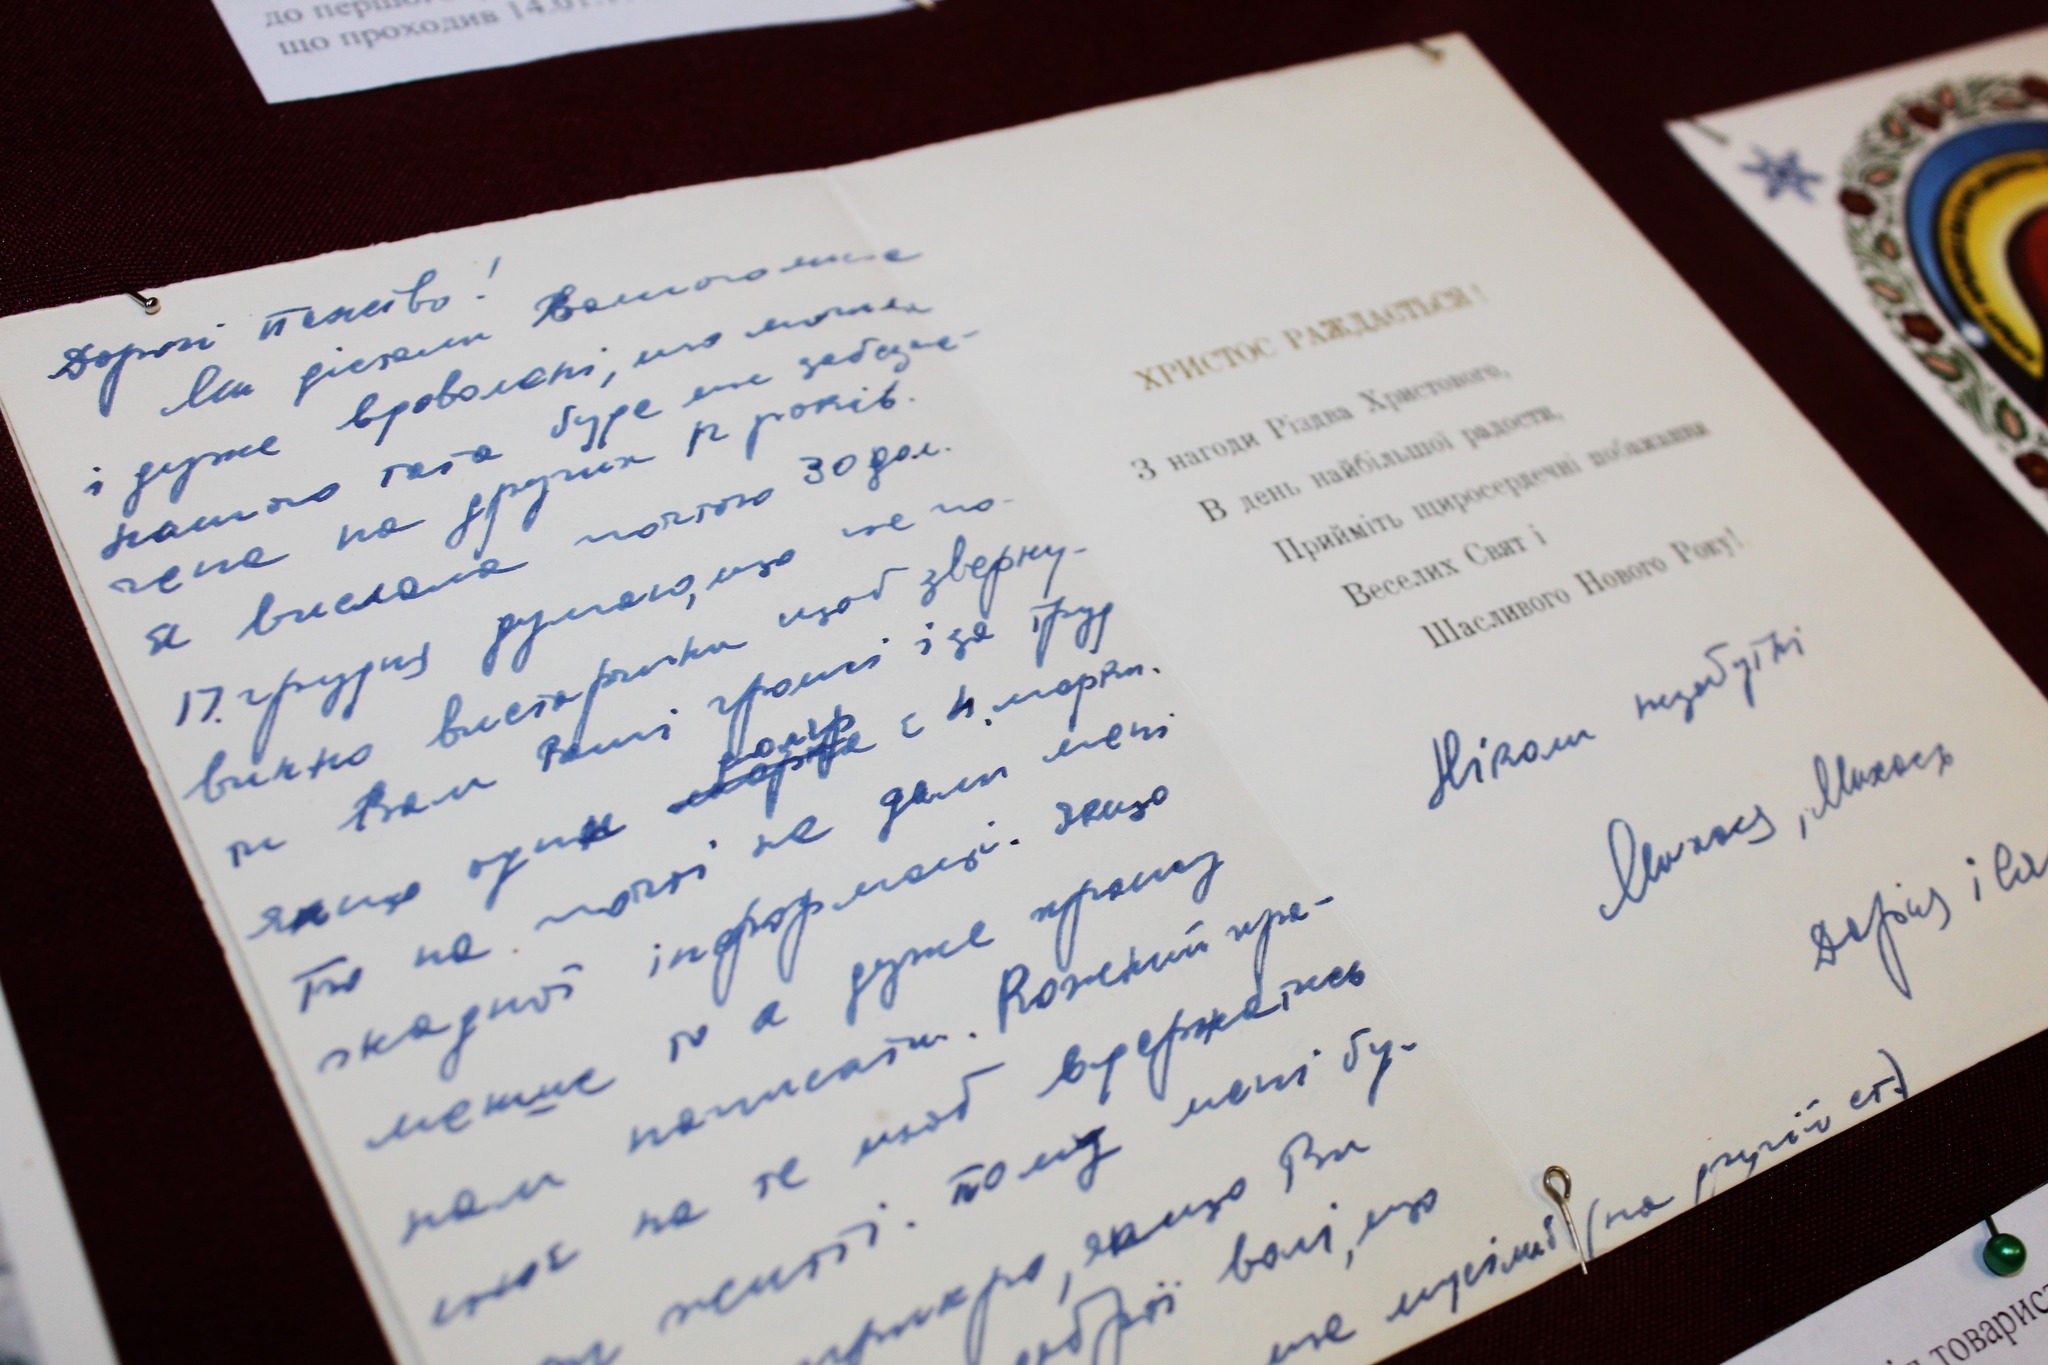 до першого
що проходив 14.01.
Дорогі Панство!
Ми дістали Вашого листа
і дуже вдоволені, що могила
нашого тата буде ще забезпе-
чена на других 12 років.
Я вислала поштою 30 дол.
17. грудня думаю, що це по-
винно вистарчити щоб зверну-
ти Вам Ваші гроші і за труд
якщо один доляр є 4. марки.
То на почті не дали мені
жадної інформації. Якщо
менше то я дуже прошу
нам написати. Кожний пра-
цює на те щоб вдержатись
при житті. Тому мені бу-
прикро, якщо Ви
добрій волі, що
ще мусіли (на другій ст.)
ХРИСТОС РАЖДАЄТЬСЯ!
З нагоди Різдва Христового,
В день найбільшої радости,
Прийміть щиросердечні побажання
Веселих Свят і
Шасливого Нового Року!
Ніколи незабутні
Михась
Дарія і
товарист